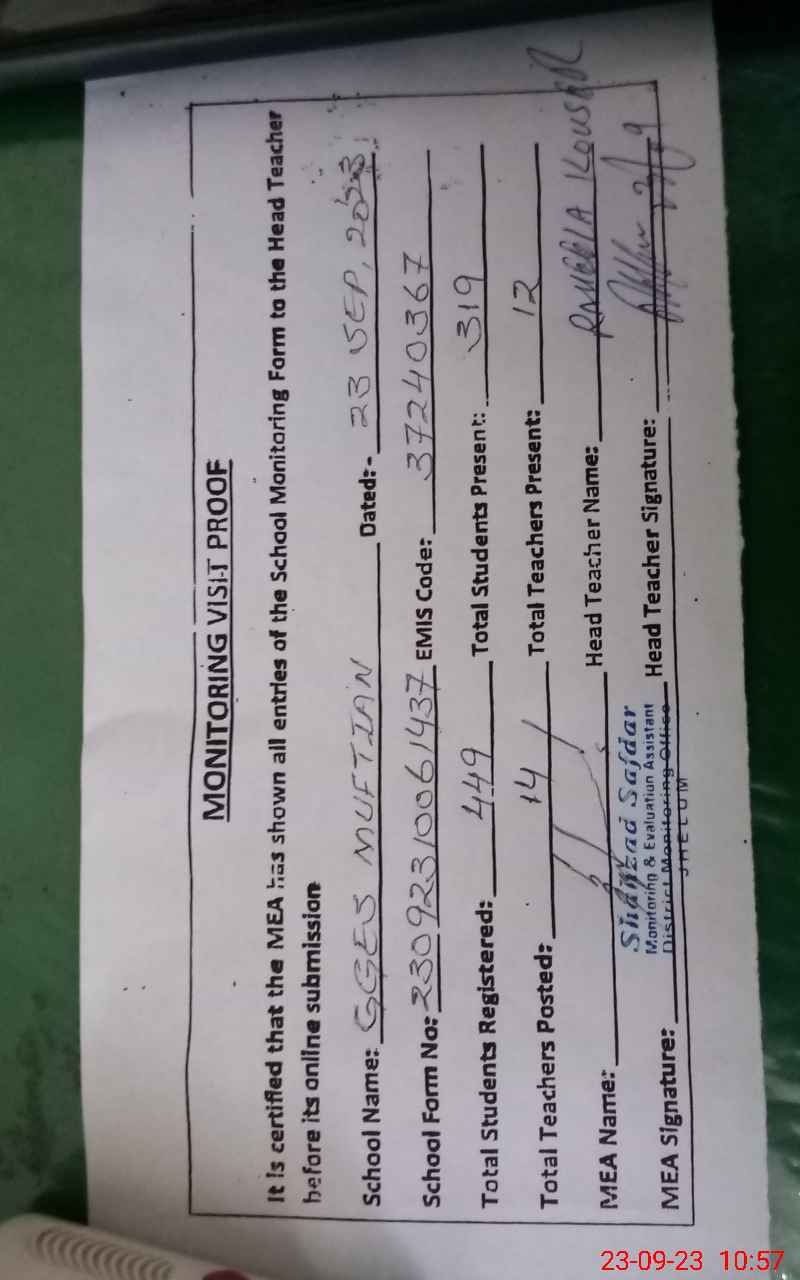 MONITORING VISIT PROOF
It is certified that the MEA has shown all entries of the School Monitoring Form to the Head Teacher
before its online submission
School Name: GGES MUFTIAN Dated:- 23 SEP, 2023
School Form No: 23092310061437 EMIS Code: 37240367
Total Students Registered: 449 Total Students Present: 319
Total Teachers Posted: 14 Total Teachers Present: 12
MEA Name: Head Teacher Name: KOUSAR
Shahzad Safdar
Monitoring & Evaluation Assistant
District Monitoring Office
JHELUM
MEA Signature: Head Teacher Signature:
23-09-23 10:57